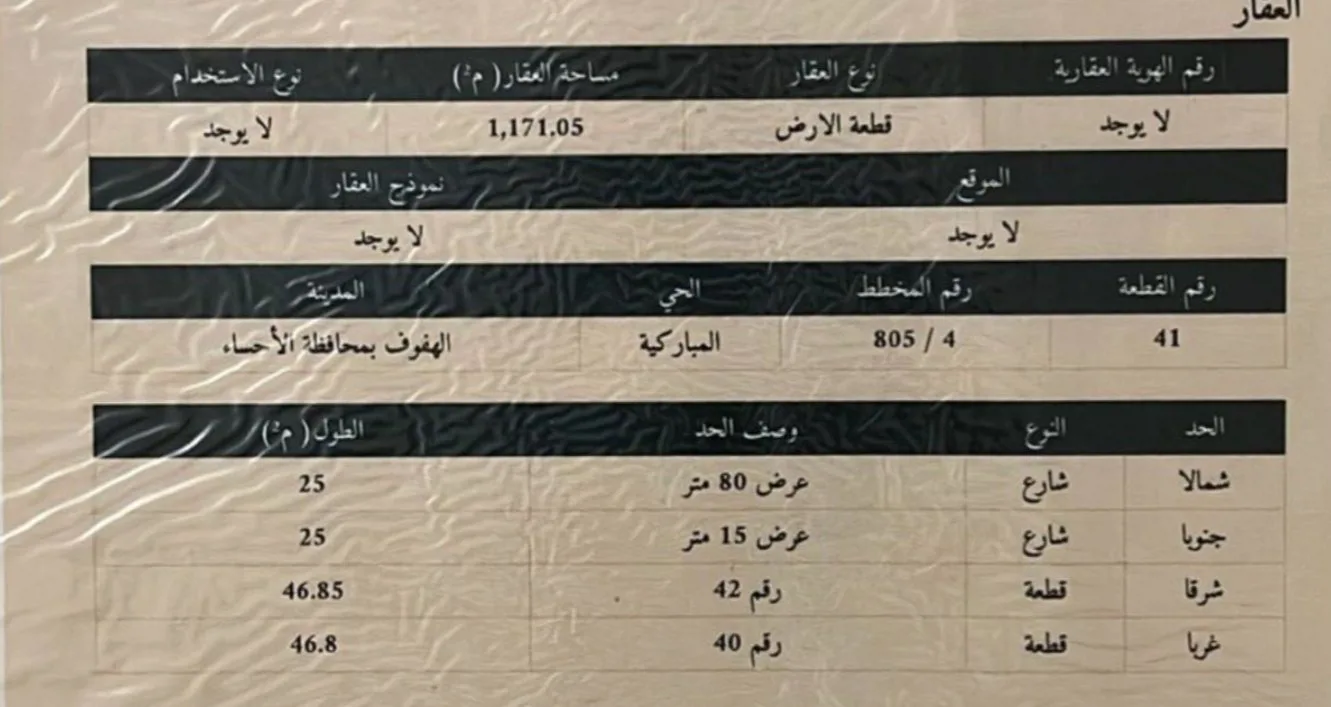 العقار
رقم الهوية العقارية نوع العقار مساحة العقار( م²) نوع الاستخدام
لا يوجد قطعة الارض 1,171.05 لا يوجد
الموقع نموذج العقار
لا يوجد لا يوجد
رقم القطعة رقم المخطط الحي المدينة
41 4 / 805 المباركية الهفوف بمحافظة الأحساء
الحد النوع وصف الحد الطول( م²)
شمالا شارع عرض 80 متر 25
جنوبا شارع عرض 15 متر 25
شرقا قطعة رقم 42 46.85
غربا قطعة رقم 40 46.8